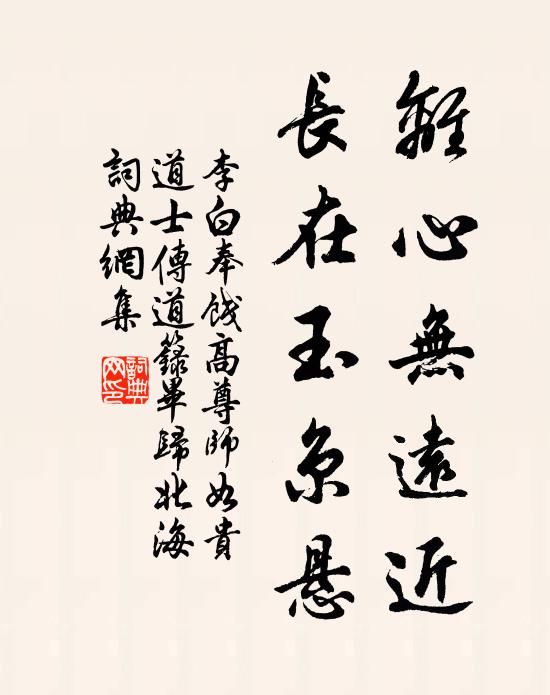 離心無遠近
長在玉京懸
李白奉餞高尊師如貴
道士傳道籙畢歸北海
詞典網集
詞典
网印